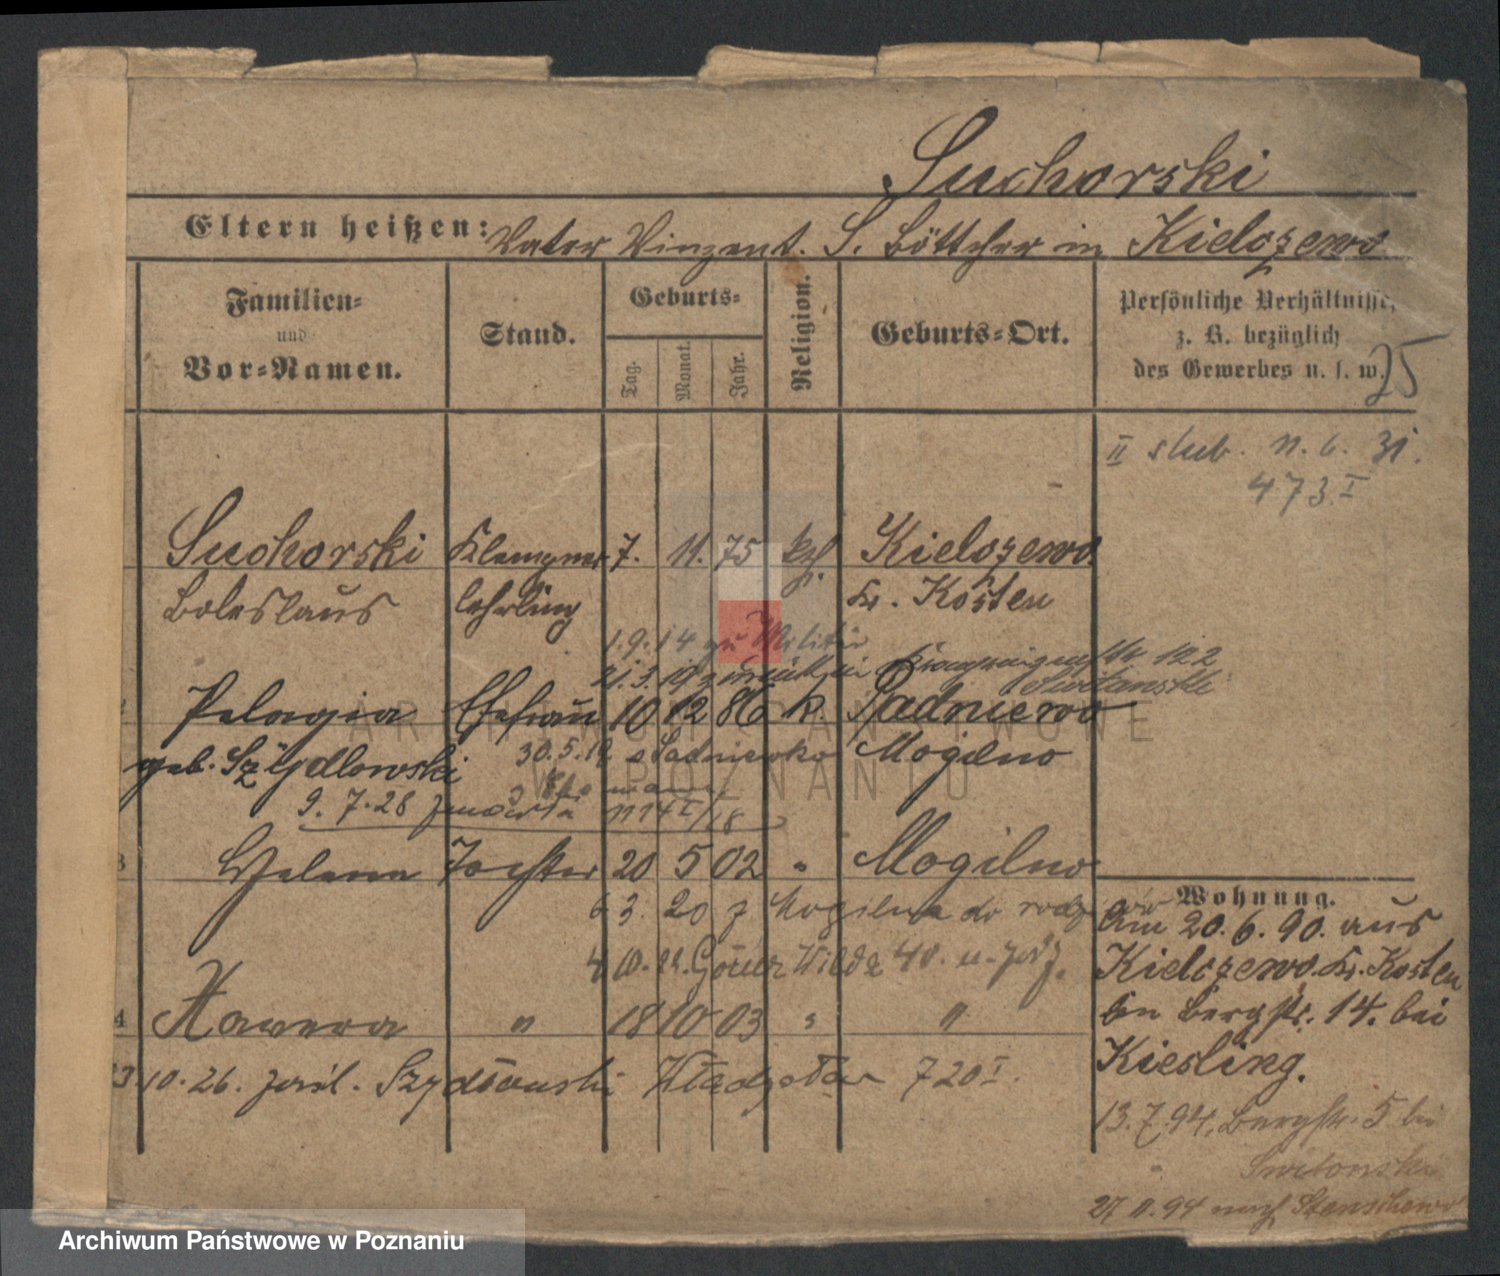 Suchorski
Eltern heißen: Vater Vinzent. S. Böttcher in Kielczewo
Familien= und Vor=Namen.
Stand.
Geburts=
Tag. Monat. Jahr.
Religion.
Geburts=Ort.
Persönliche Verhältnisse,
z. B. bezüglich
des Gewerbes u. s. w.
25
II slub. 11. 6. 31.
473.I
Suchorski Klempner 7. 11. 75 kath. Kielczewo
Boleslaus lehrling Kr. Kosten
1.9.14 zu Militär
21.3.19 zurück 122
2 Pelagia Ehefrau 10 12 86 k. Padniewo
geb. Szydlowski 30.5.19 Mogilno
9. 7. 28 zmarła 1174 I/18
3 Helena Tochter 20 5 02 " Mogilno
6 3. 20 z Mogilna do
4 10. 22. Górna Wilda 40.
4 Xawera " 18 10 03 " "
3 10. 26. Szydłowski 720 I.
Wohnung.
Am 20. 6. 90. aus
Kielczewo. Kr. Kosten
Bergstr. 14. bei
Kiesling.
13. 7. 94. Bergstr. 5 bei
Switonski
27 11. 94 nach
ARCHIWUM PAŃSTWOWE
W POZNANIU
Archiwum Państwowe w Poznaniu